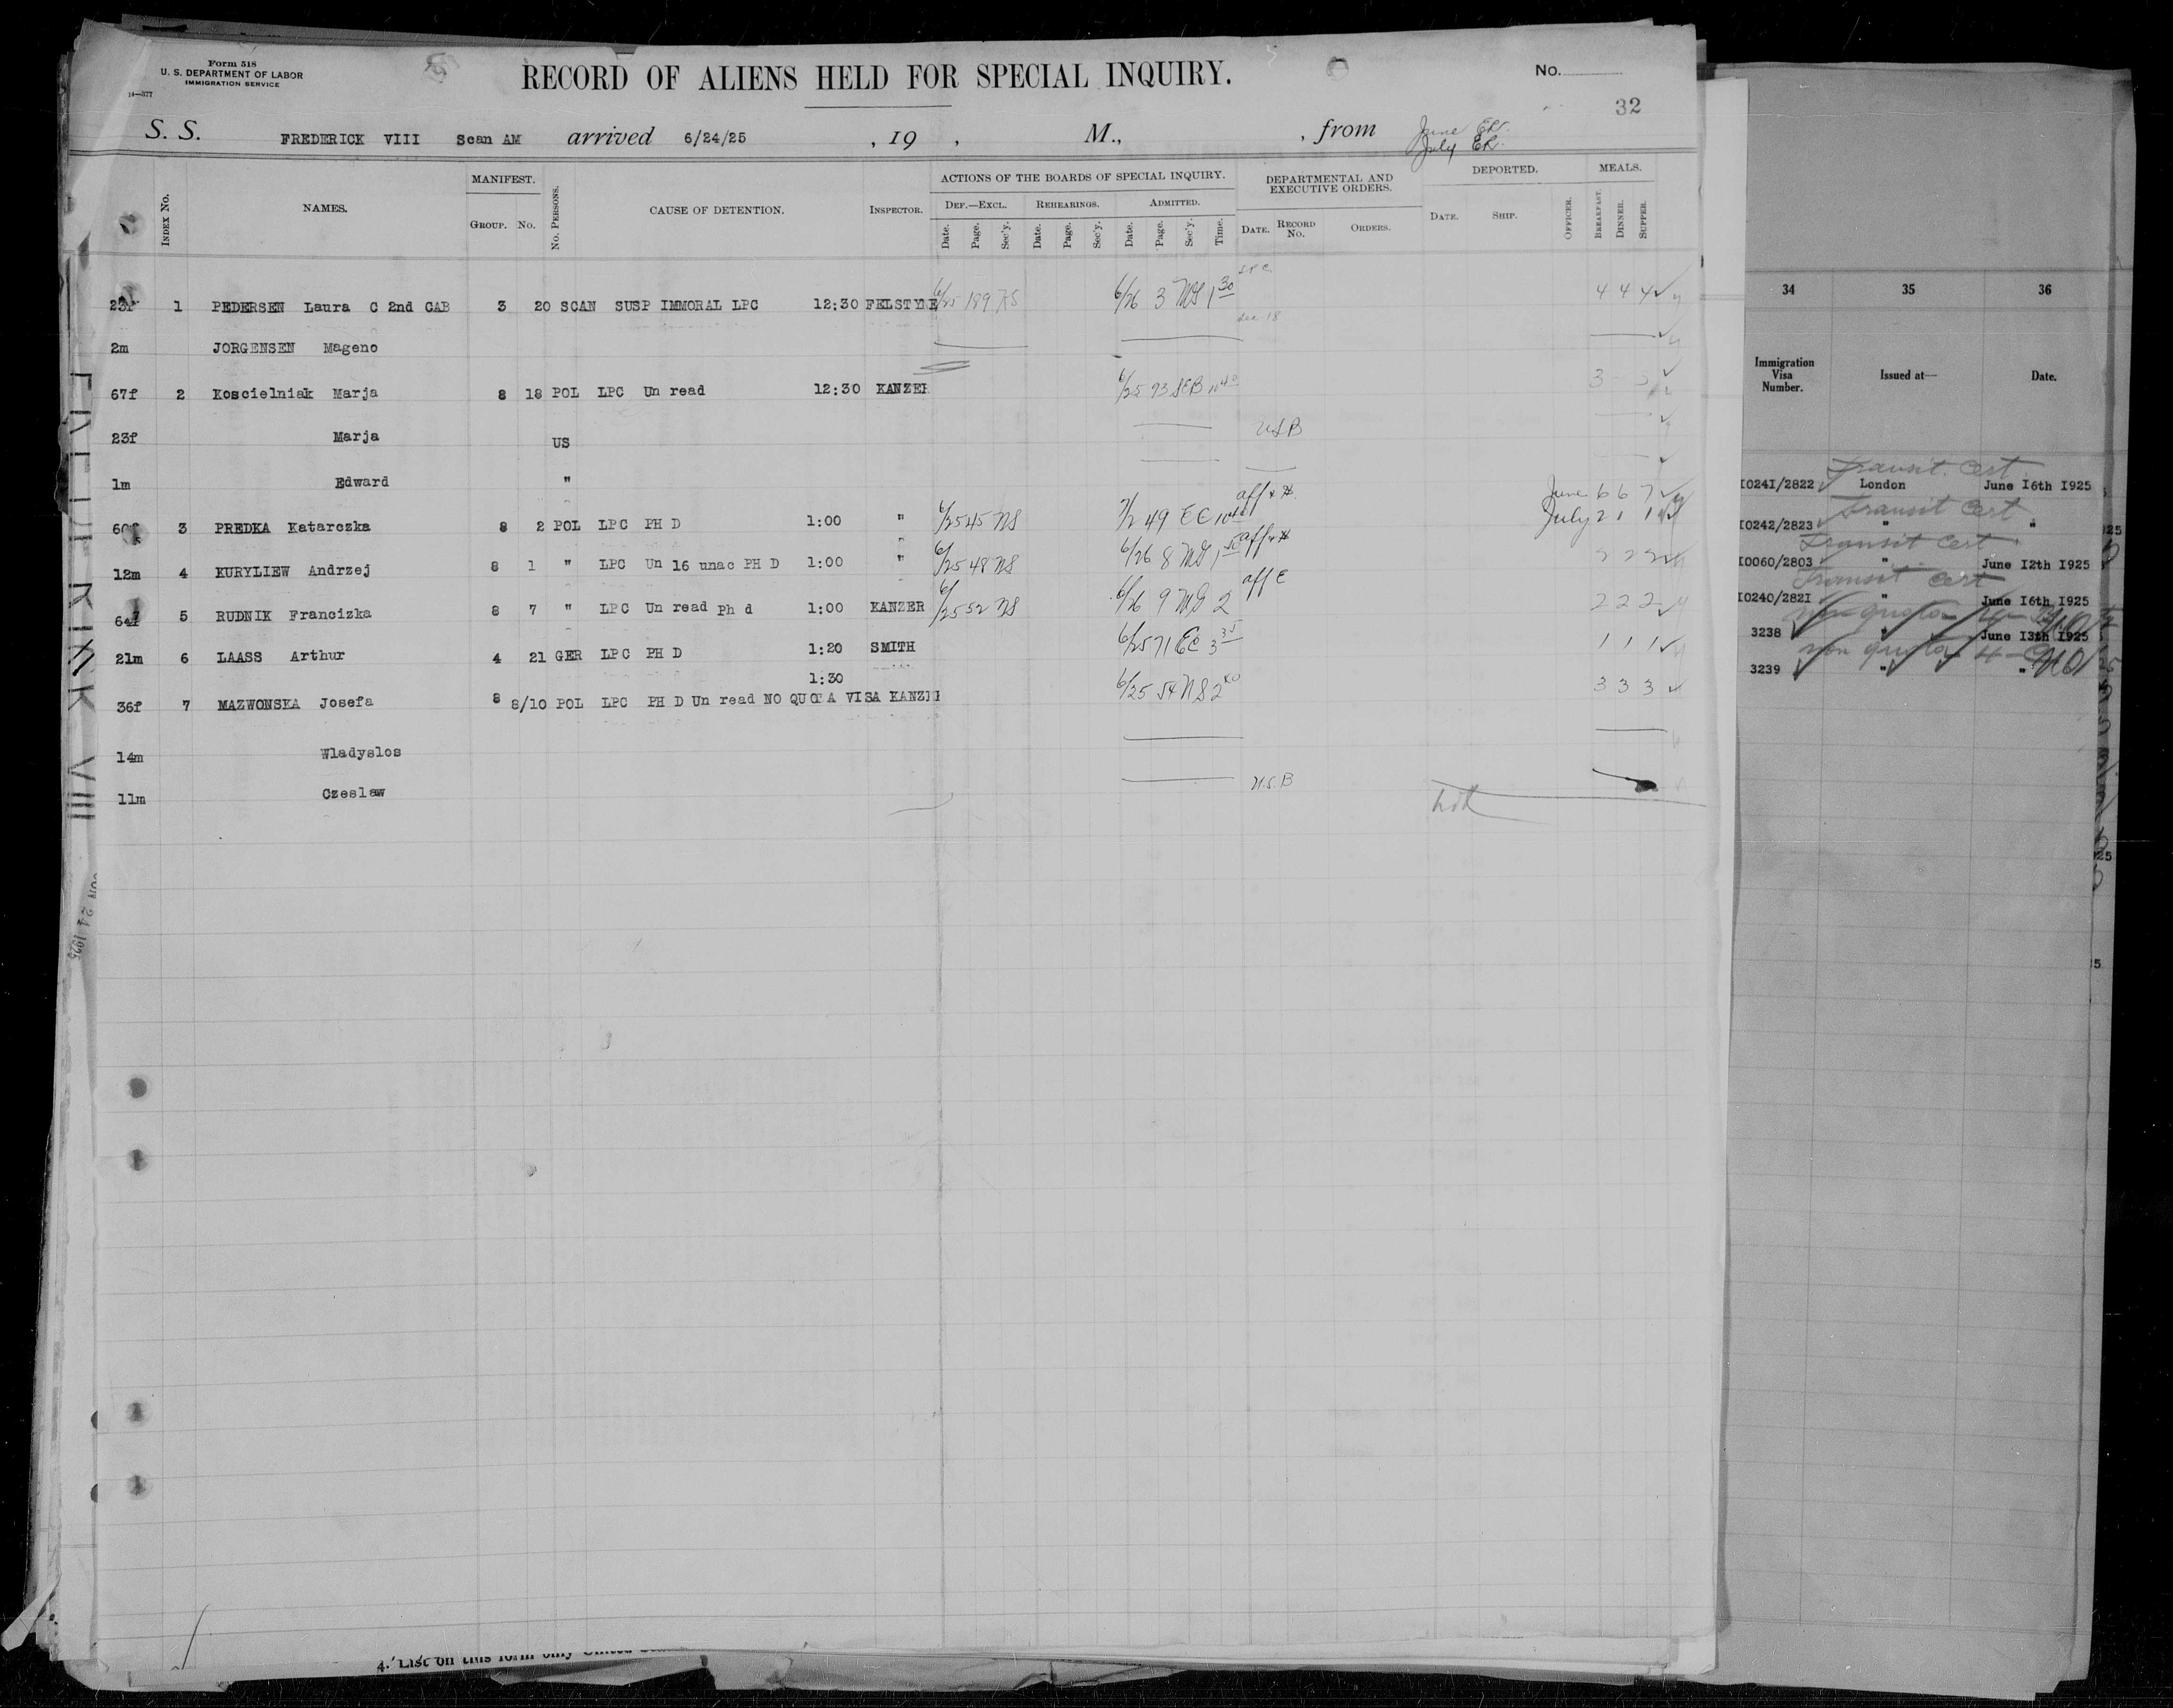 Form 518
U. S. DEPARTMENT OF LABOR
IMMIGRATION SERVICE
14—377
RECORD OF ALIENS HELD FOR SPECIAL INQUIRY.
No.
32
S. S. FREDERICK VIII Scan AM arrived 6/24/25 , 19 , M., , from June ER.
July ER.
INDEX No. NAMES. MANIFEST. GROUP. No. No. PERSONS. CAUSE OF DETENTION. INSPECTOR.
ACTIONS OF THE BOARDS OF SPECIAL INQUIRY.
DEF.—EXCL. REHEARINGS. ADMITTED.
Date. Page. Sec'y. Date. Page. Sec'y. Date. Page. Sec'y. Time.
DEPARTMENTAL AND EXECUTIVE ORDERS.
DATE. RECORD No. ORDERS.
DEPORTED.
DATE. SHIP. OFFICER.
MEALS.
BREAKFAST. DINNER. SUPPER.
23f 1 PEDERSEN Laura C 2nd CAB 3 20 SCAN SUSP IMMORAL LPC 12:30 FELSTYNE 6/25 189 6/26 3 MS 1 30 4 4 4
2m JORGENSEN Mageno
67f 2 Koscielniak Marja 8 18 POL LPC Un read 12:30 KANZER 6/25 73 SEB 10 40 3
23f Marja US USB
1m Edward "
3 PREDKA Katarczka 8 2 POL LPC PH D 1:00 " 6/25 45 NS 7/2 49 EC 10 June 6 6 7
July 2 1 1
12m 4 KURYLIEW Andrzej 8 1 " LPC Un 16 unac PH D 1:00 " 6/25 48 NS 6/26 8 MS 1 2 2 2
5 RUDNIK Francizka 8 7 " LPC Un read Ph d 1:00 KANZER 6/25 52 NS 6/26 9 MS 2 aff E 2 2 2
21m 6 LAASS Arthur 4 21 GER LPC PH D 1:20 SMITH 6/25 71 EC 3 35 1 1 1
1:30
36f 7 MAZWONSKA Josefa 8 8/10 POL LPC PH D Un read NO QUOTA VISA KANZER 6/25 54 NS 2 40 3 3 3
14m Wladyslos
11m Czeslaw U.S.B
VIII
34 35 36
Immigration Visa Number. Issued at— Date.
Transit Cert
I0241/2822 London June I6th I925
Transit Cert
I0242/2823 " "
Transit Cert
I0060/2803 " June I2th I925
Transit Cert
I0240/282I " June I6th I925
non quota
3238 " June I3th I925
non quota
3239 " "
4. List on this form only United